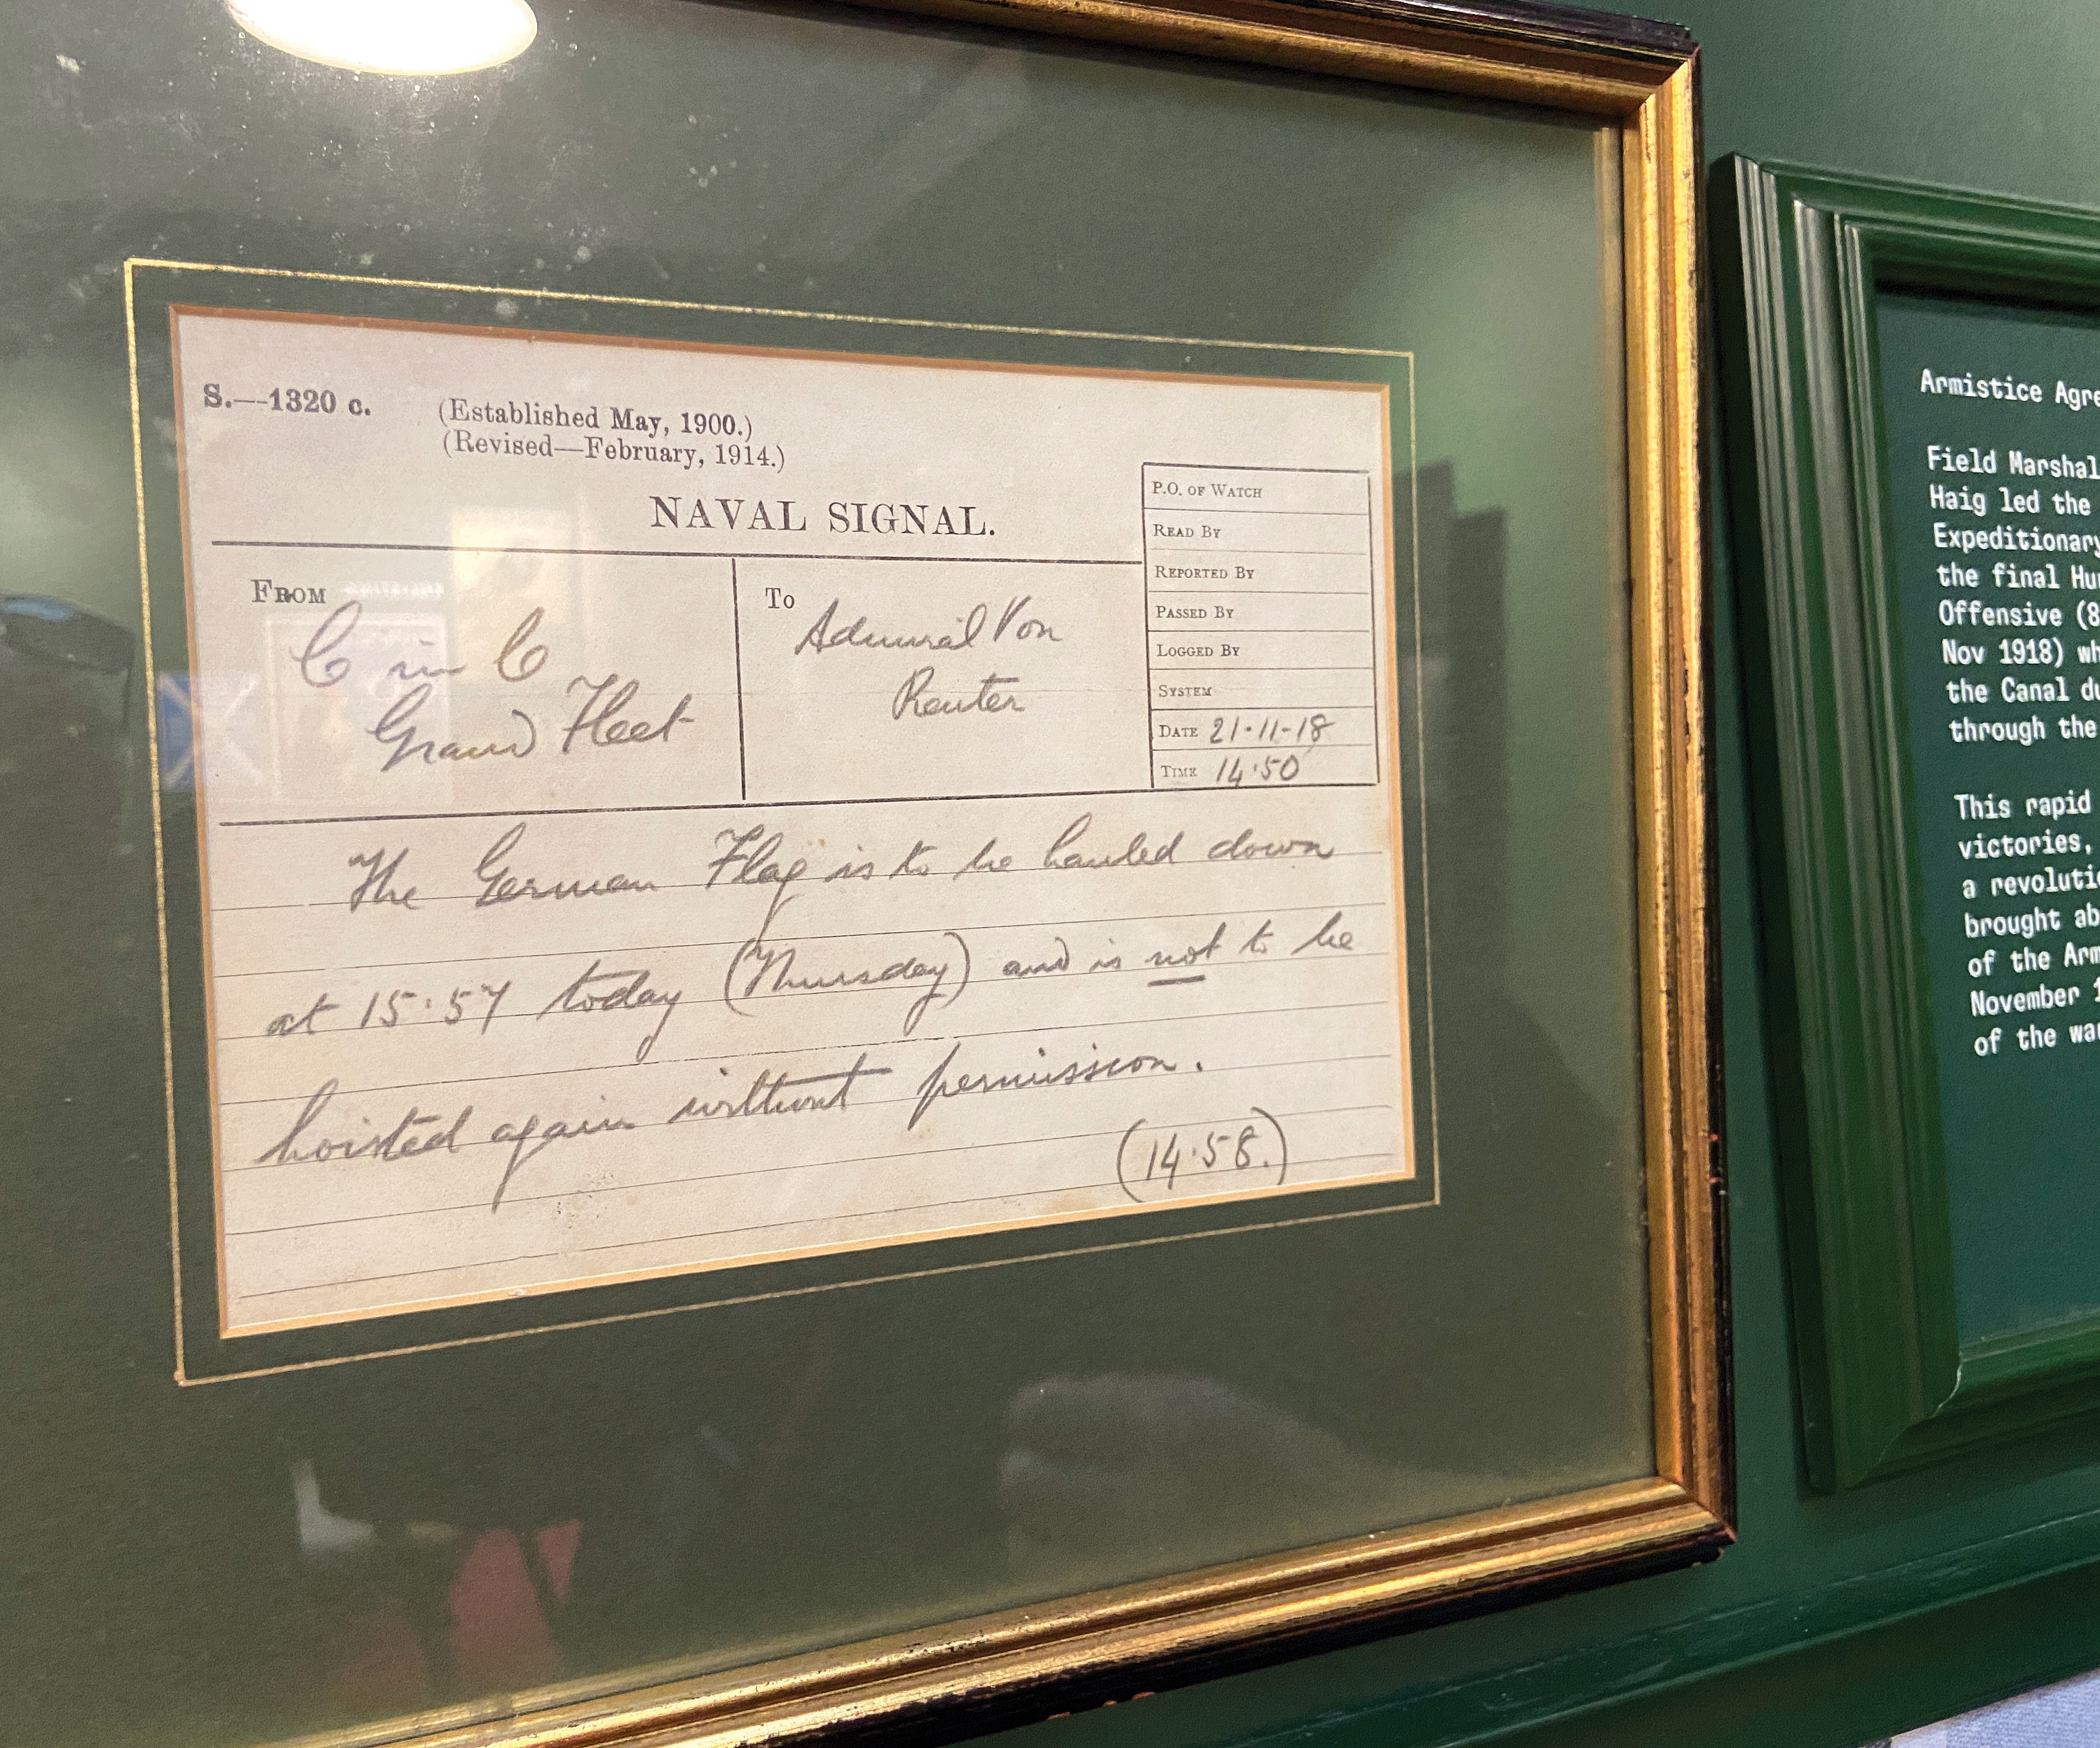 S.—1320 c.
(Established May, 1900.)
(Revised—February, 1914.)
NAVAL SIGNAL.
FROM
C in C
Grand Fleet
To
Admiral Von
Reuter
P.O. OF WATCH
READ BY
REPORTED BY
PASSED BY
LOGGED BY
SYSTEM
DATE 21-11-18
TIME 14.50
The German Flag is to be hauled down
at 15.57 today (Thursday) and is not to be
hoisted again without permission.
(14.58.)
Armistice Agre
Field Marshal
Haig led the
Expeditionary
the final Hu
Offensive (8
Nov 1918) wh
the Canal du
through the
This rapid
victories,
a revolutio
brought ab
of the Arm
November 1
of the war